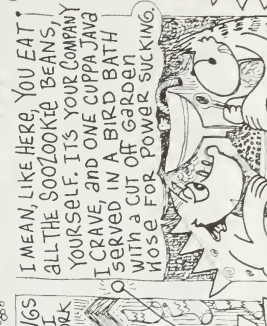 I MEAN, LIKE HERE, YOU EAT
ALL THE SOOZOOKIE BEANS,
YOURSELF. IT'S YOUR COMPANY
I CRAVE, AND ONE CUPPA JAVA
SERVED IN A BIRD BATH
WITH A CUT OFF GARDEN
HOSE FOR POWER SUCKING.